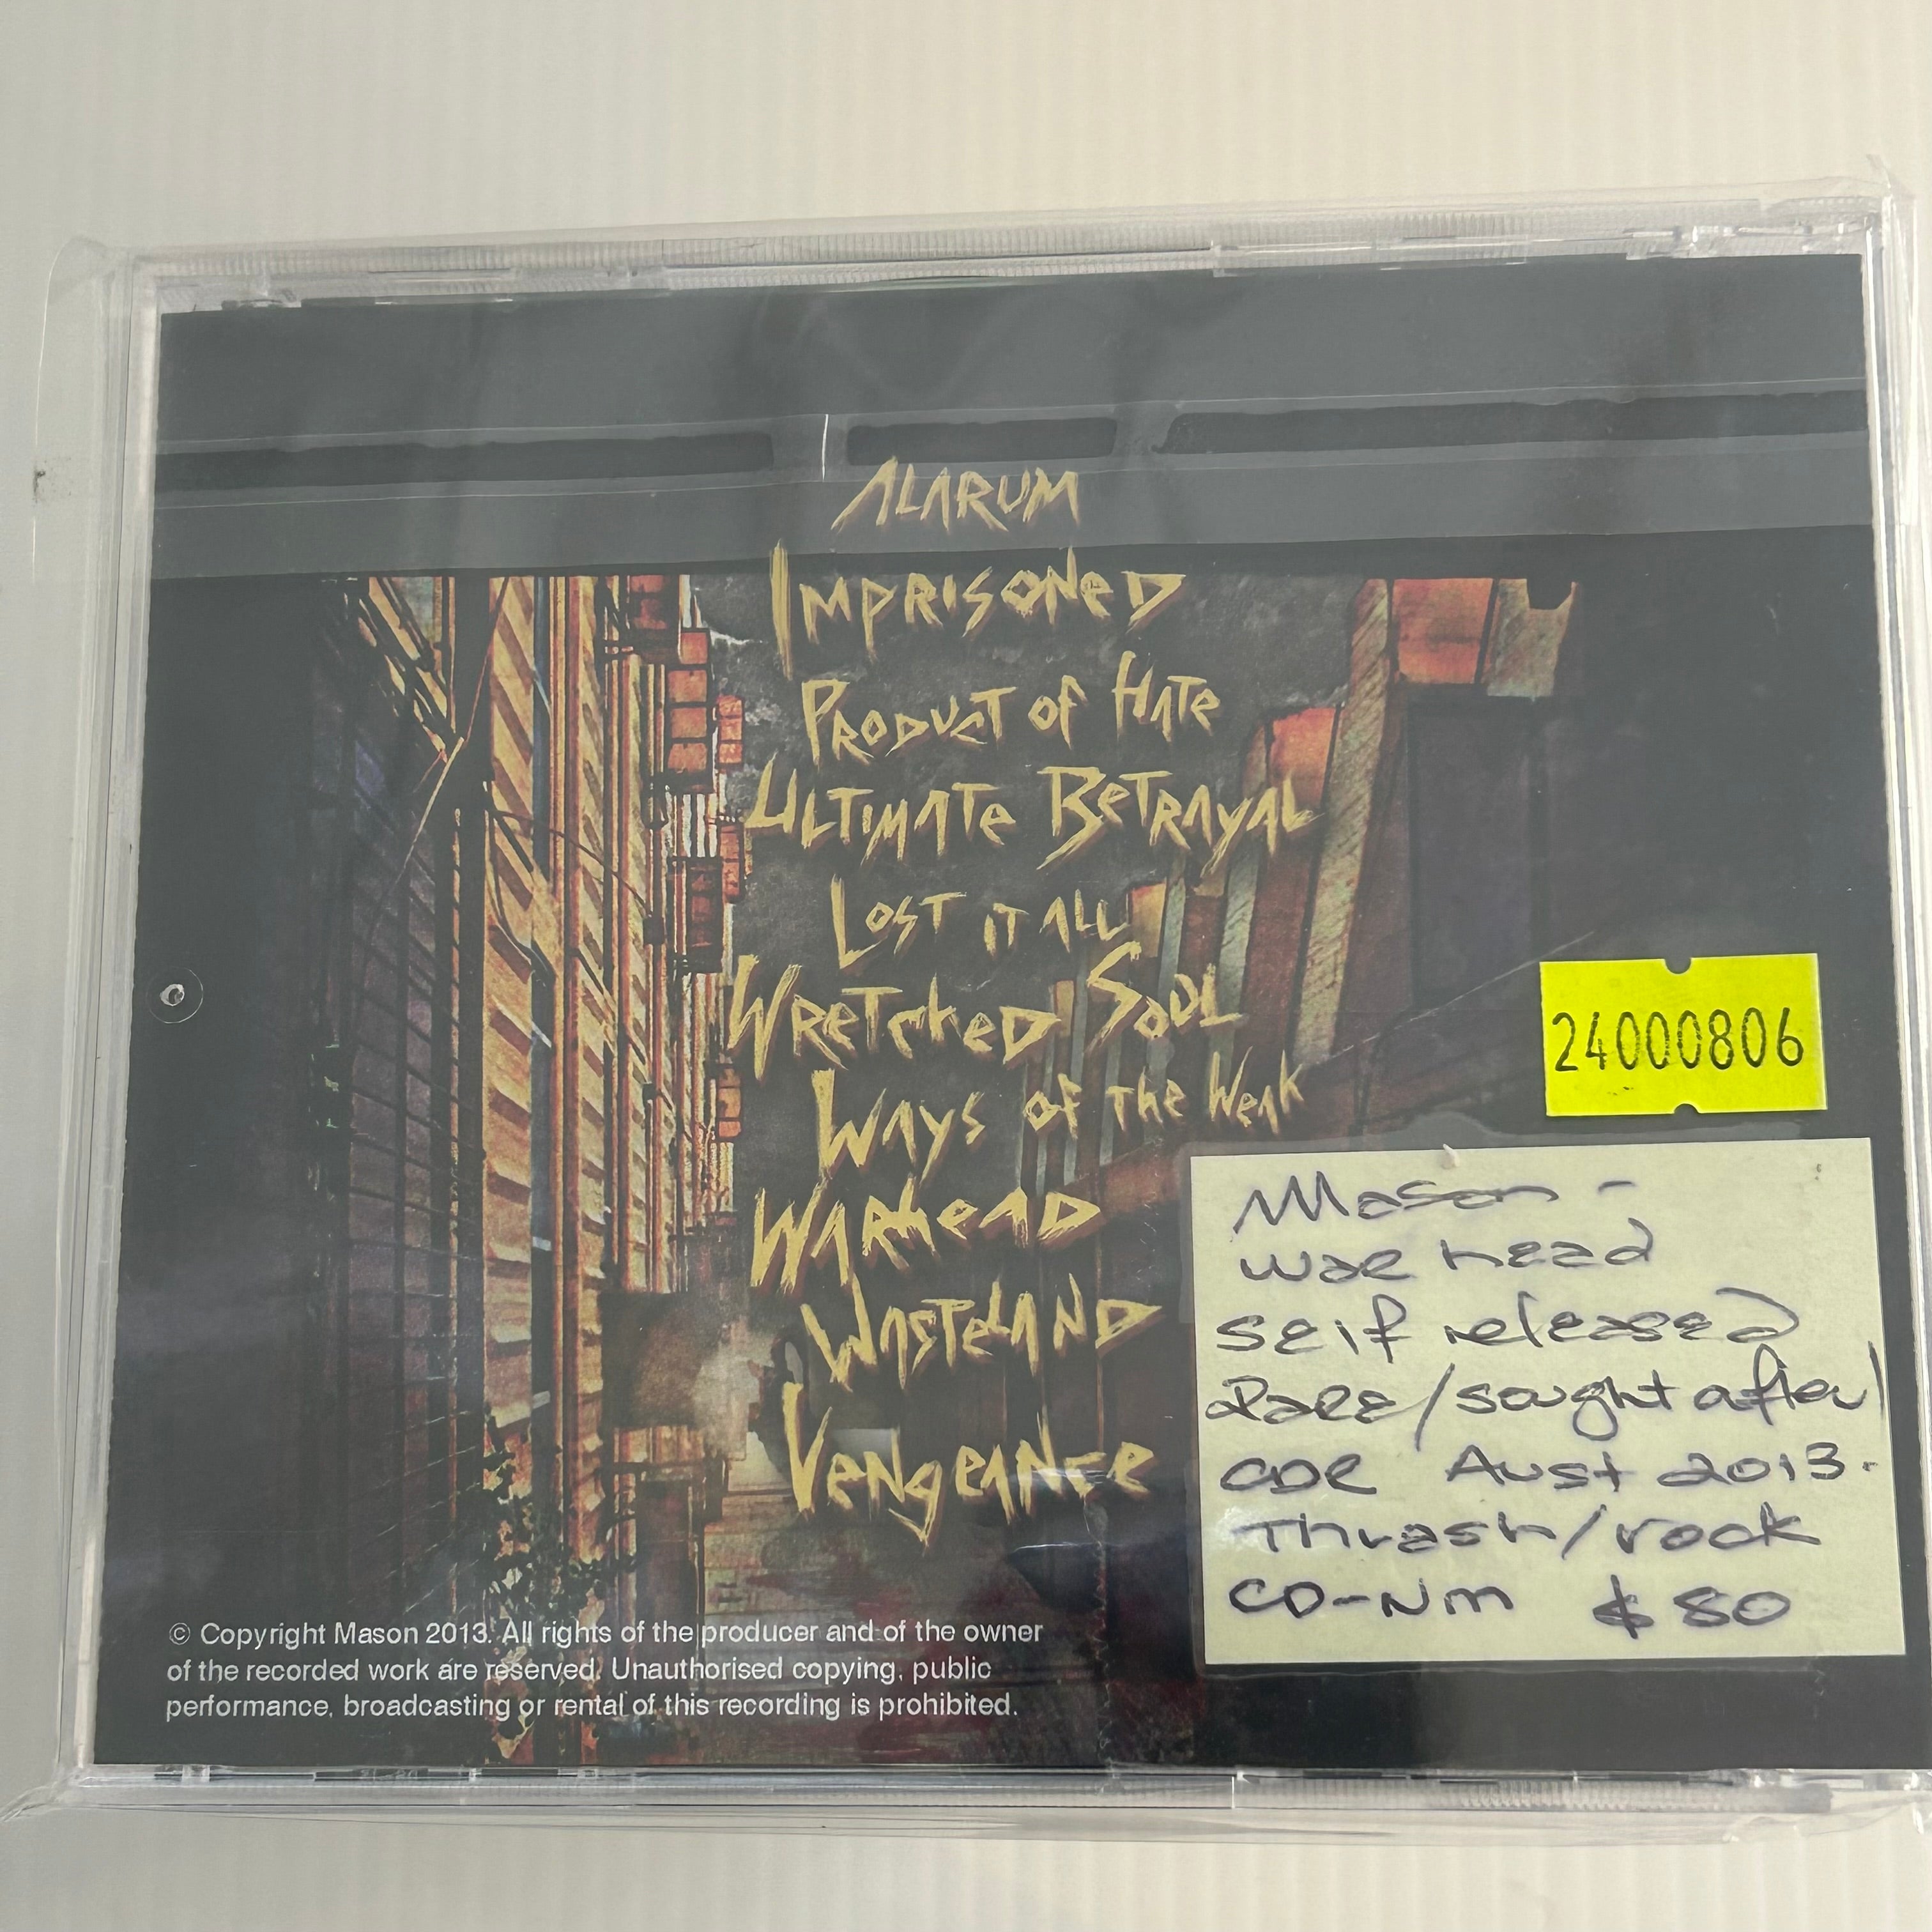 ALARUM
IMPRISONED
PRODUCT OF HATE
ULTIMATE BETRAYAL
LOST IT ALL
WRETCHED SOUL
WAYS OF THE WEAK
WARHEAD
WASTELAND
VENGEANCE
24000806
Mason -
war head
self released
Rare/sought after/
CDR Aust 2013.
Thrash/rock
CD-NM $80
© Copyright Mason 2013. All rights of the producer and of the owner
of the recorded work are reserved. Unauthorised copying, public
performance, broadcasting or rental of this recording is prohibited.